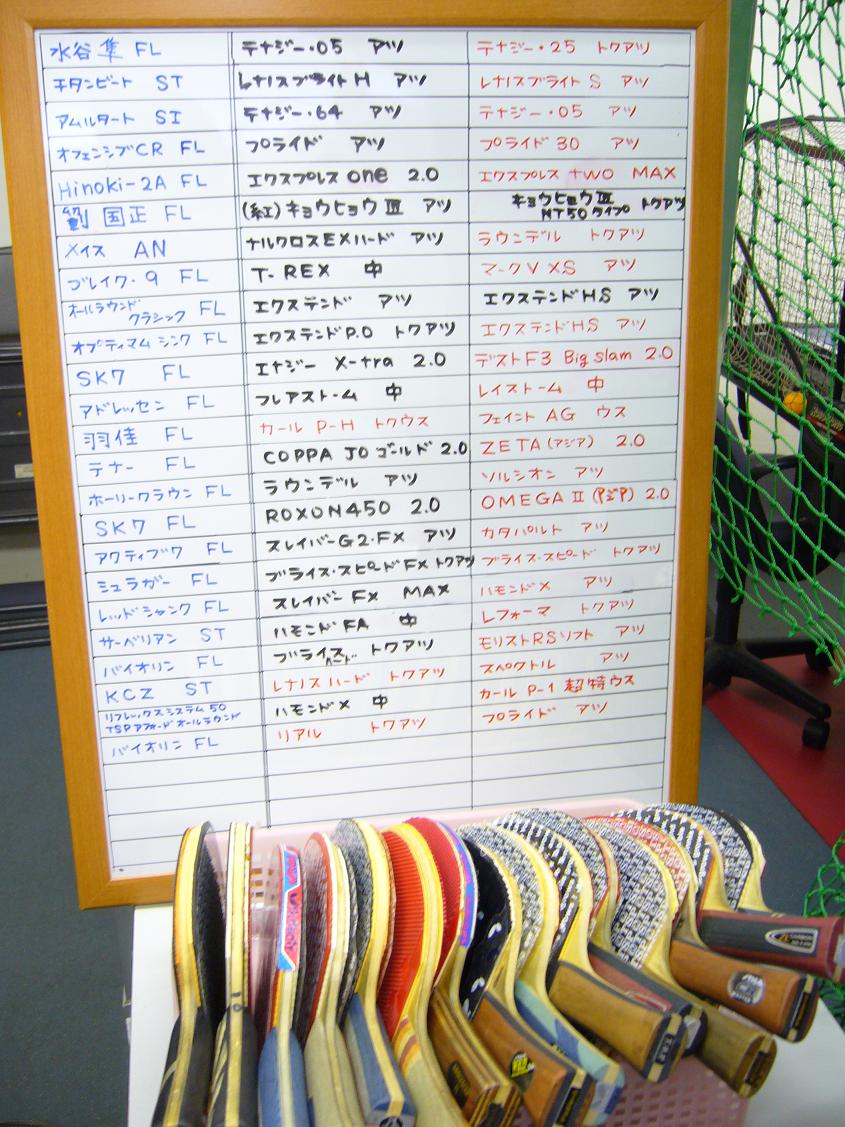 水谷隼 FL テナジー・05 アツ テナジー・25 トクアツ
チタンビート ST レナノスブライトH アツ レナノスブライトS アツ
アムルタート SI テナジー・64 アツ テナジー・05 アツ
オフェンシブCR FL プライド アツ プライド30 アツ
Hinoki-2A FL エクスプレス one 2.0 エクスプレス two MAX
劉国正 FL (紅)キョウヒョウⅢ アツ キョウヒョウⅢ
NT50タイプ トクアツ
メイス AN ナルクロスEXハード アツ ラウンデル トクアツ
ブレイク・9 FL T-REX 中 マークV XS アツ
オールラウンド
クラシック FL エクステンド アツ エクステンドHS アツ
オプティマム シンク FL エクステンドP.O トクアツ エクステンドHS アツ
SK7 FL エナジー X-tra 2.0 デストF3 Big slam 2.0
アドレッセン FL フレアストーム 中 レイストーム 中
羽佳 FL カール P-H トクウス フェイント AG ウス
テナー FL COPPA JO ゴールド 2.0 ZETA(アジア) 2.0
ホーリークラウン FL ラウンデル アツ ソルシオン アツ
SK7 FL ROXON450 2.0 OMEGA II (アジア) 2.0
アクティブク FL スレイバーG2・FX アツ カタパルト アツ
シュラガー FL ブライス・スピードFX トクアツ ブライス・スピード トクアツ
レッドシャンク FL スレイバーFX MAX ハモンドX アツ
サーベリアン ST ハモンドFA 中 レフォーマ トクアツ
バイオリン FL ブライスハード トクアツ モリストRSソフト アツ
KCZ ST レナノスハード トクアツ スペクトル アツ
リフレックスシステム50
TSPアフォードオールラウンド ハモンドX 中 カール P-1 超特ウス
バイオリン FL リアル トクアツ プライド アツ